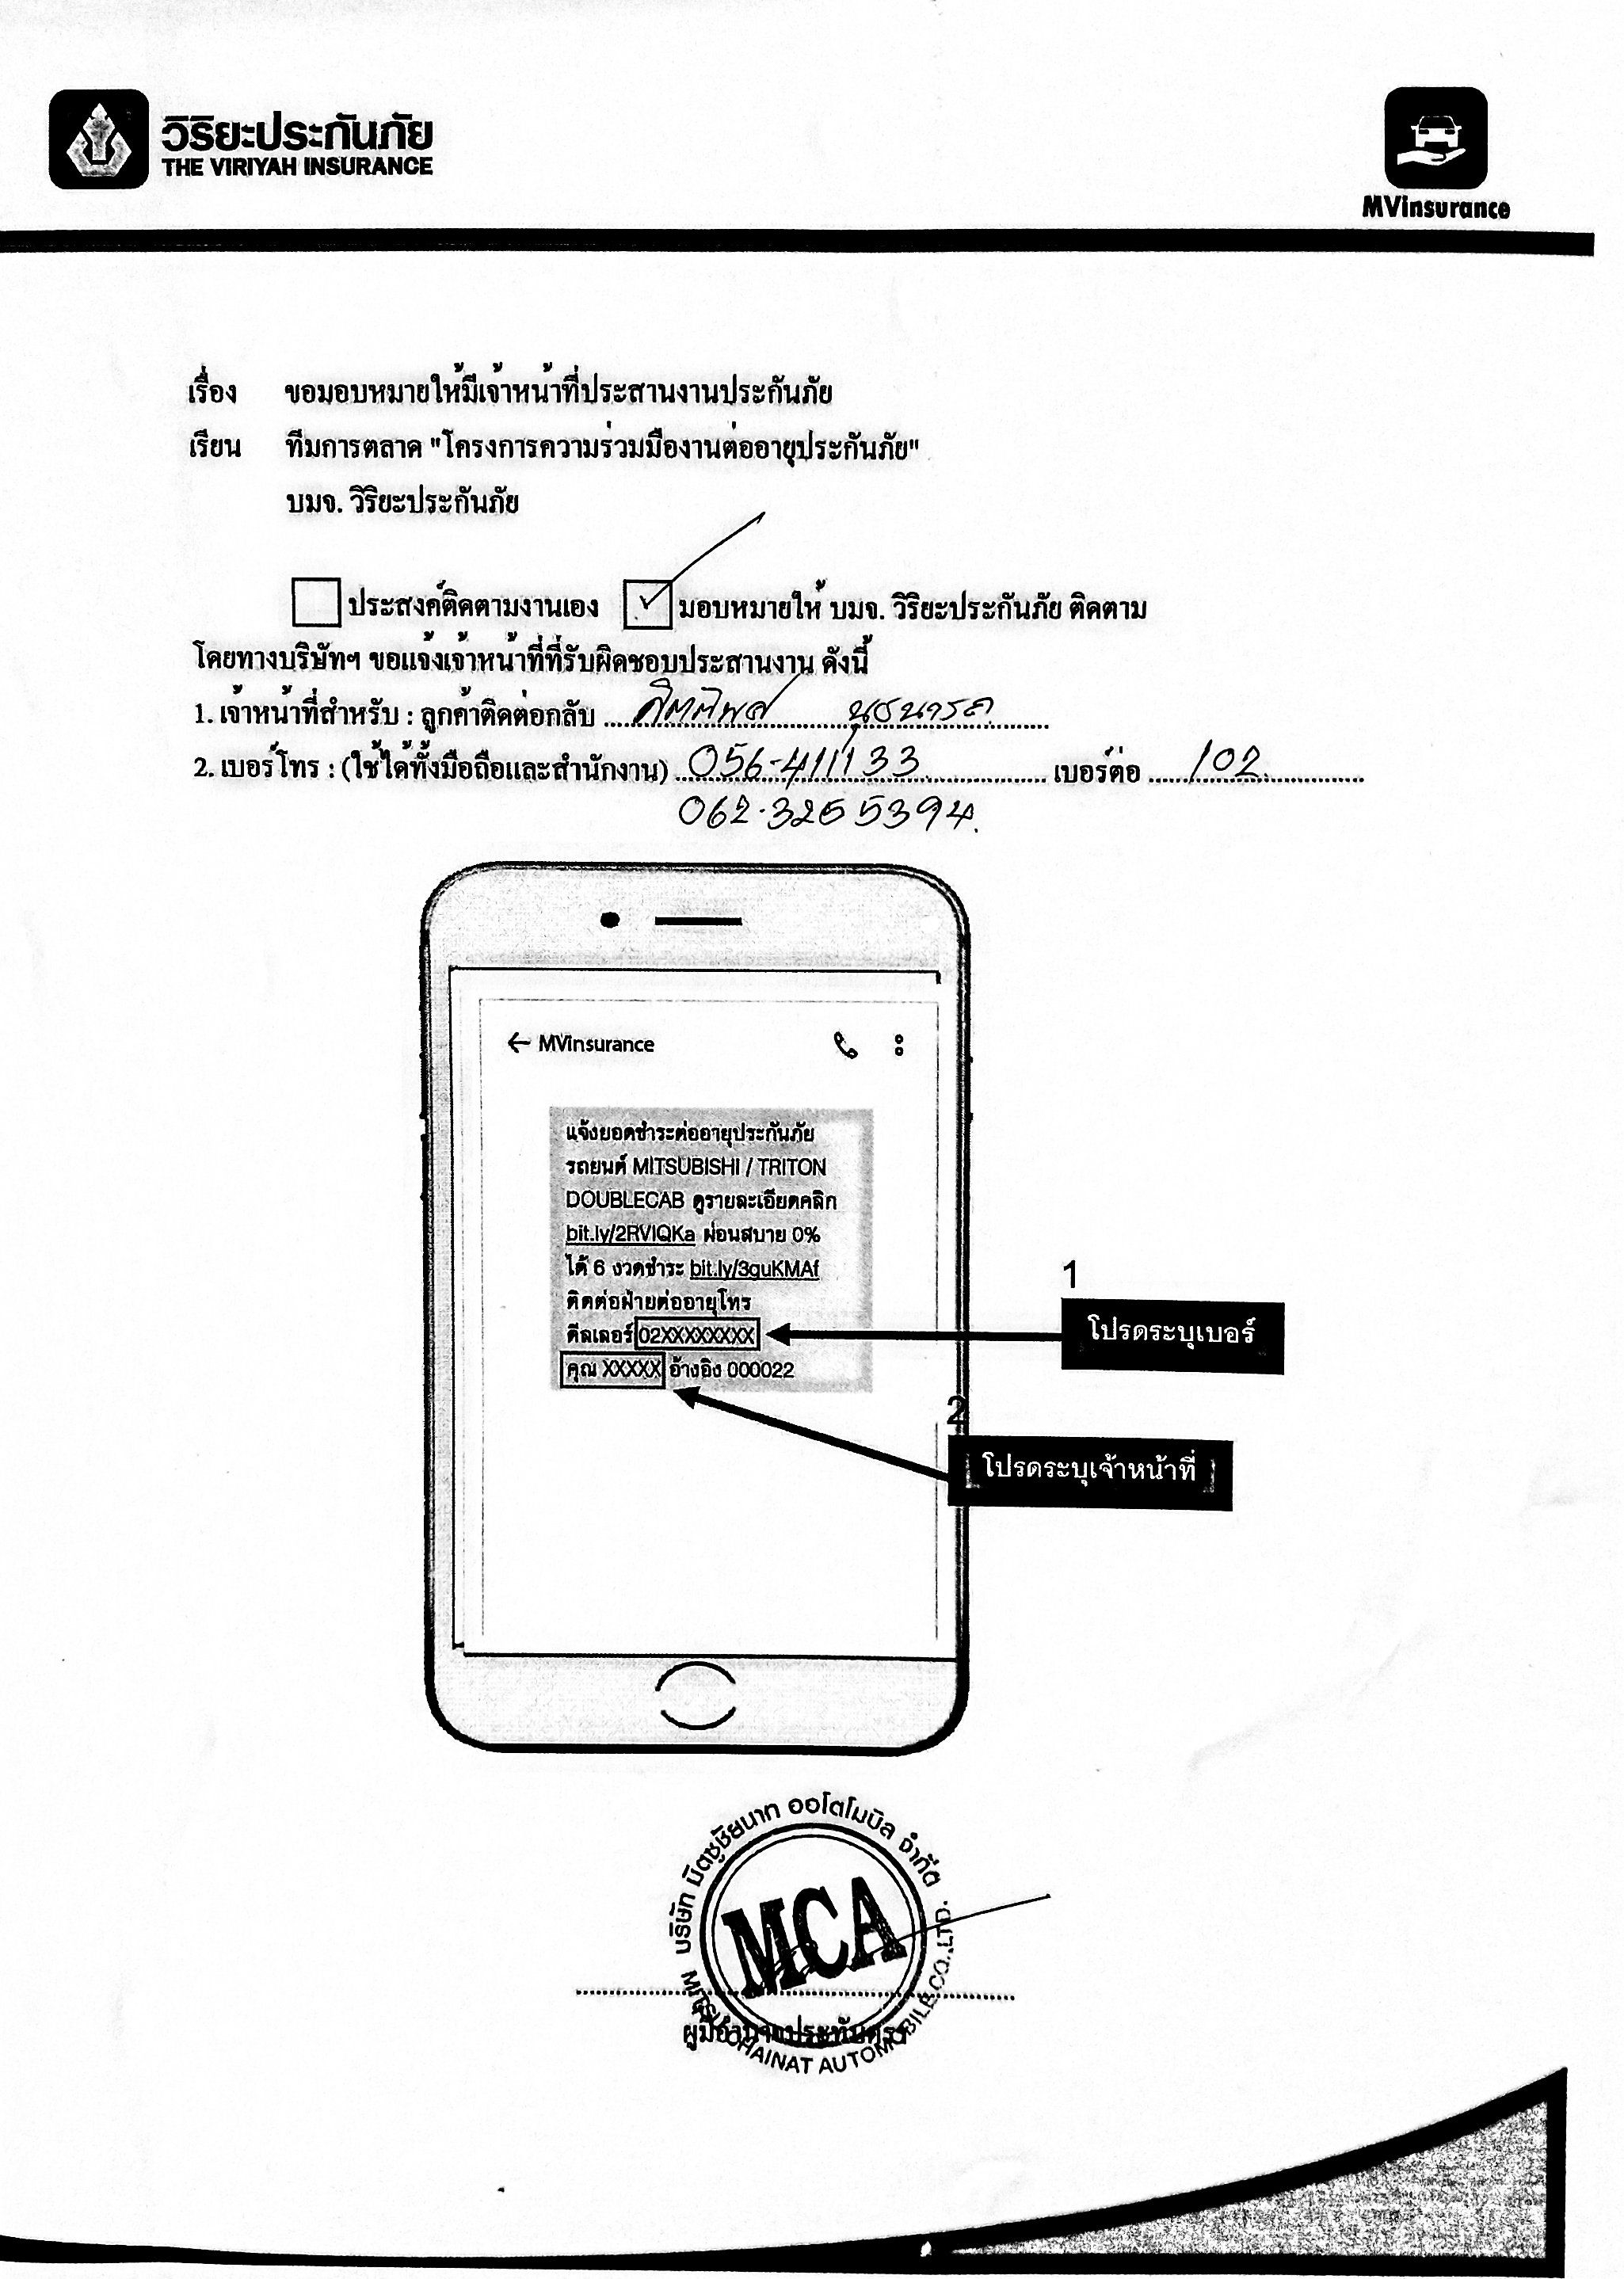 วิริยะประกันภัย
THE VIRIYAH INSURANCE
MVinsurance
เรื่อง ขอมอบหมายให้มีเจ้าหน้าที่ประสานงานประกันภัย
เรียน ทีมการตลาด "โครงการความร่วมมืองานต่ออายุประกันภัย"
บมจ. วิริยะประกันภัย
ประสงค์ติดตามงานเอง ✓ มอบหมายให้ บมจ. วิริยะประกันภัย ติดตาม
โดยทางบริษัทฯ ขอแจ้งเจ้าหน้าที่ที่รับผิดชอบประสานงาน ดังนี้
1. เจ้าหน้าที่สำหรับ : ลูกค้าติดต่อกลับ
2. เบอร์โทร : (ใช้ได้ทั้งมือถือและสำนักงาน) 056-411133 เบอร์ต่อ 102
062-3265394
← MVinsurance
แจ้งยอดชำระต่ออายุประกันภัย
รถยนต์ MITSUBISHI / TRITON
DOUBLECAB ดูรายละเอียดคลิก
bit.ly/2RVIQKa ผ่อนสบาย 0%
ได้ 6 งวดชำระ bit.ly/3guKMAf
ติดต่อฝ่ายต่ออายุโทร
ดีลเลอร์ 02XXXXXXXX
คุณ XXXXX อ้างอิง 000022
1
โปรดระบุเบอร์
2
โปรดระบุเจ้าหน้าที่
บริษัท มิตซูชัยนาท ออโตโมบิล จำกัด
MCA
MITSU CHAINAT AUTOMOBILE CO.,LTD.
ผู้มีอำนาจประทับตรา